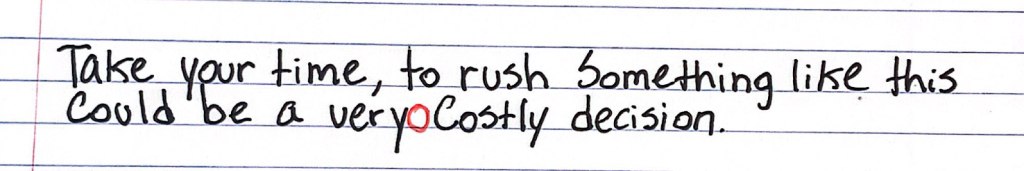 Take your time, to rush Something like this
Could be a veryoCostly decision.